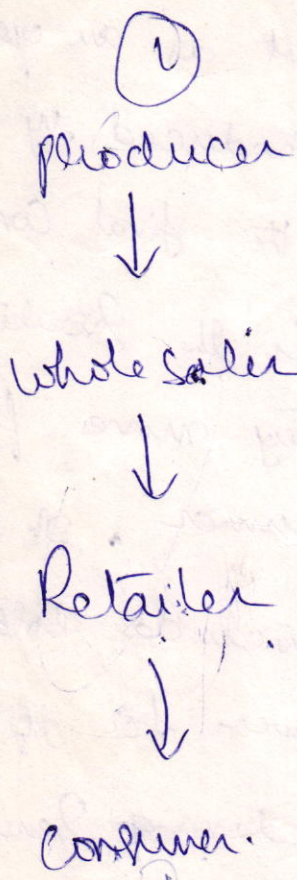 1
producer
↓
wholesaler
↓
Retailer
↓
consumer.